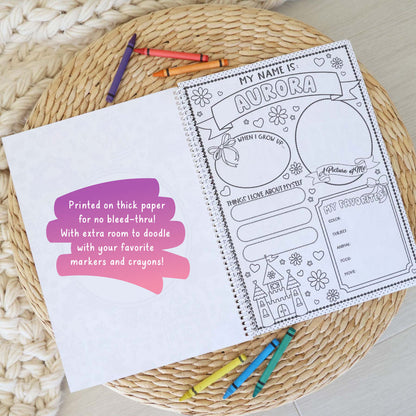 Printed on thick paper
for no bleed-thru!
With extra room to doodle
with your favorite
markers and crayons!
MY NAME IS:
AURORA
WHEN I GROW UP
A Picture of Me
THINGS I LOVE ABOUT MYSELF
MY FAVORITE
COLOR:
SUBJECT:
ANIMAL:
FOOD:
MOVIE: